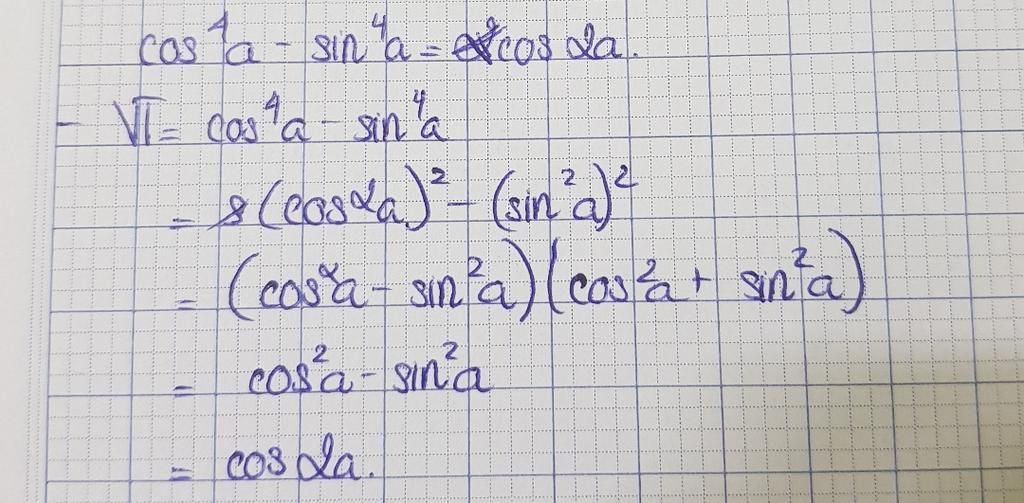 cos⁴a - sin⁴a = cos 2a.
- VT = cos⁴a - sin⁴a
= (cos²a)² - (sin²a)²
= (cos²a - sin²a)(cos²a + sin²a)
= cos²a - sin²a
= cos 2a.